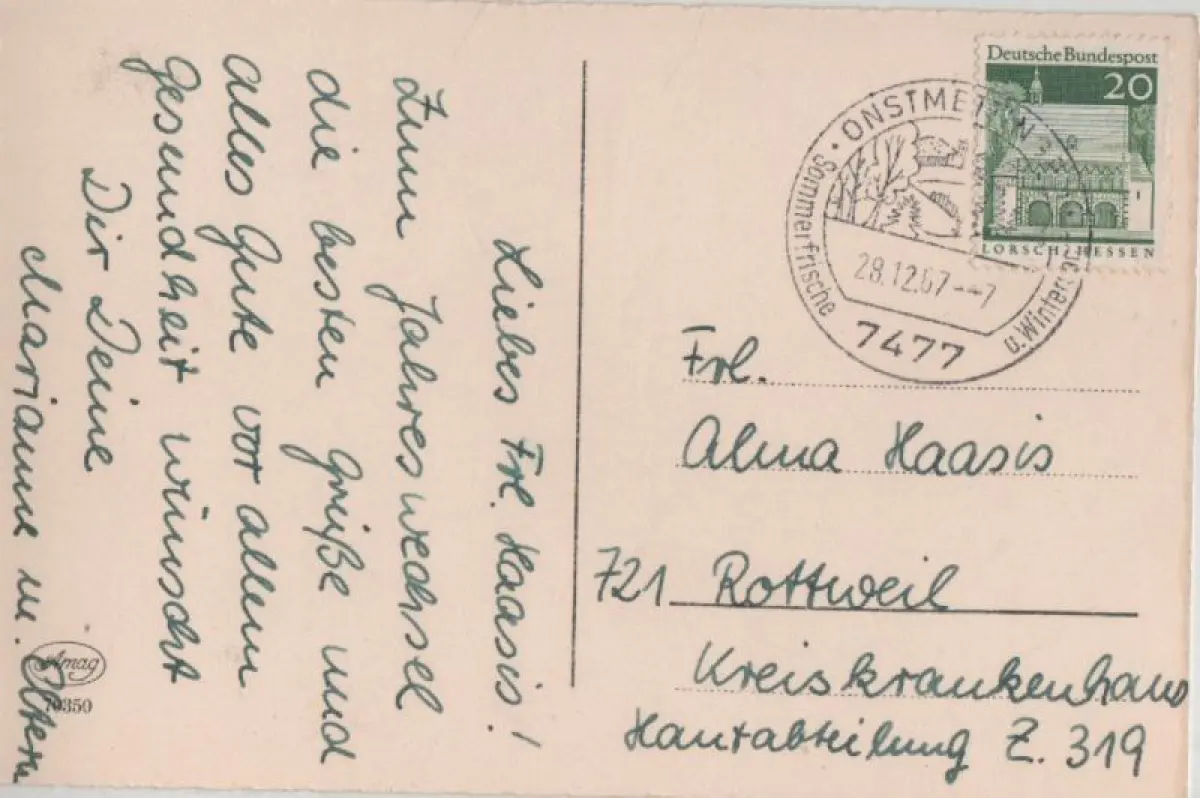 Liebes Frl. Haasis!
Zum Jahreswechsel
die besten Grüße und
alles Gute vor allem
Gesundheit wünscht
Dir Deine
Marianne m. Eltern
Amag
70350
Deutsche Bundespost
20
LORSCH/HESSEN
ONSTMETTINGEN
Sommerfrische
u. Winter
28.12.67--7
7477
Frl.
Alma Haasis
721 Rottweil
Kreiskrankenhaus
Hautabteilung Z. 319